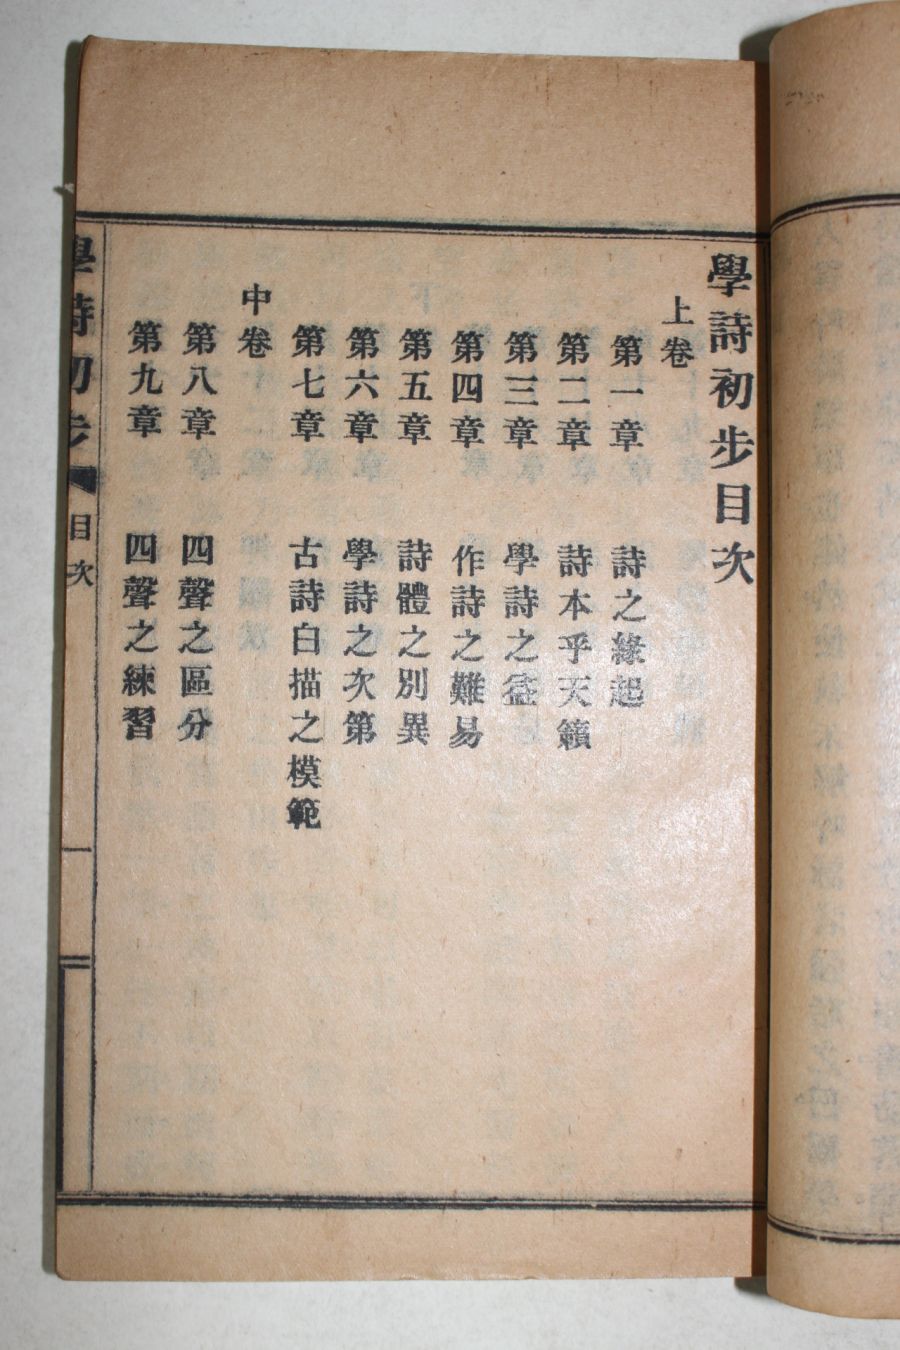 學詩初步目次
上卷
第一章 詩之緣起
第二章 詩本乎天籟
第三章 學詩之益
第四章 作詩之難易
第五章 詩體之別異
第六章 學詩之次第
第七章 古詩白描之模範
中卷
第八章 四聲之區分
第九章 四聲之練習
學詩初步 目次